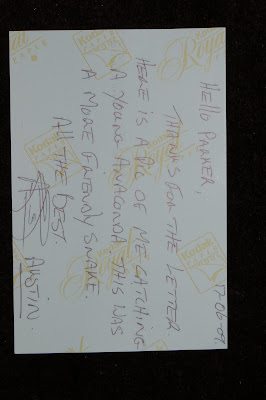 17-06-07
Hello PARKER,
THANKS FOR THE LETTER
HERE IS A PIC OF ME CATCHING
A YOUNG ANACONDA THIS WAS
A MORE FRIENDLY SNAKE.
ALL THE BEST.
AUSTIN
Kodak
Royal
PAPER